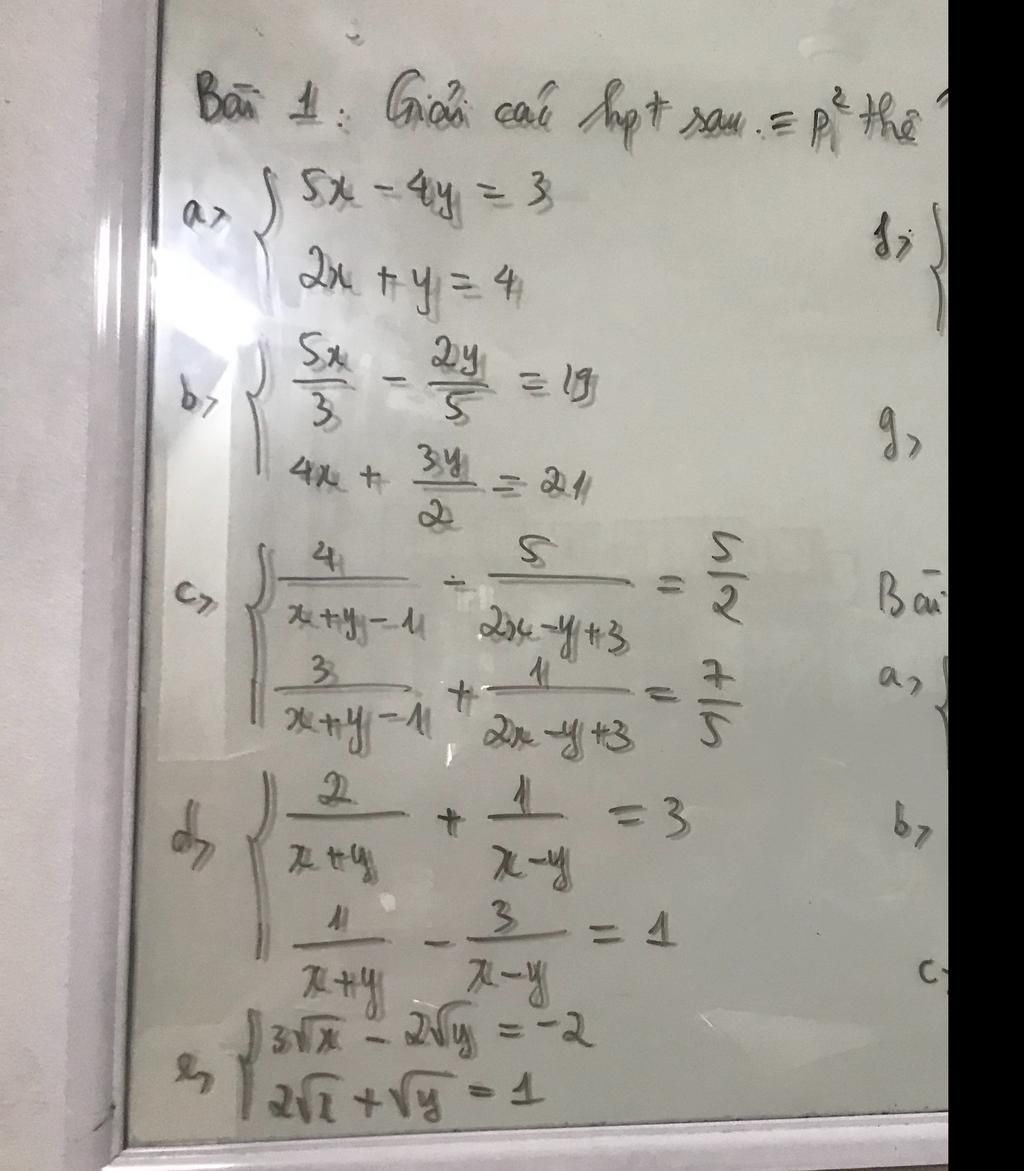 Bài 1: Giải các hpt sau. = p² thế
a> { 5x - 4y = 3
2x + y = 4
b> { 5x/3 - 2y/5 = 19
4x + 3y/2 = 21
c> { 4/(x+y-1) - 5/(2x-y+3) = 5/2
3/(x+y-1) + 1/(2x-y+3) = 7/5
d> { 2/(x+y) + 1/(x-y) = 3
1/(x+y) - 3/(x-y) = 1
e> { 3√x - 2√y = -2
2√x + √y = 1
f> {
g>
Bài
a> {
b>
c